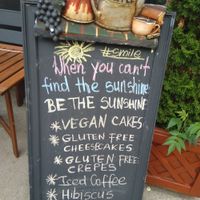 #smile
When you can't
find the sunshine
BE THE SUNSHINE
* VEGAN CAKES
* GLUTEN FREE
CHEESECAKES
* GLUTEN FREE
CREPES
* ICED COFFEE
* HIBISCUS